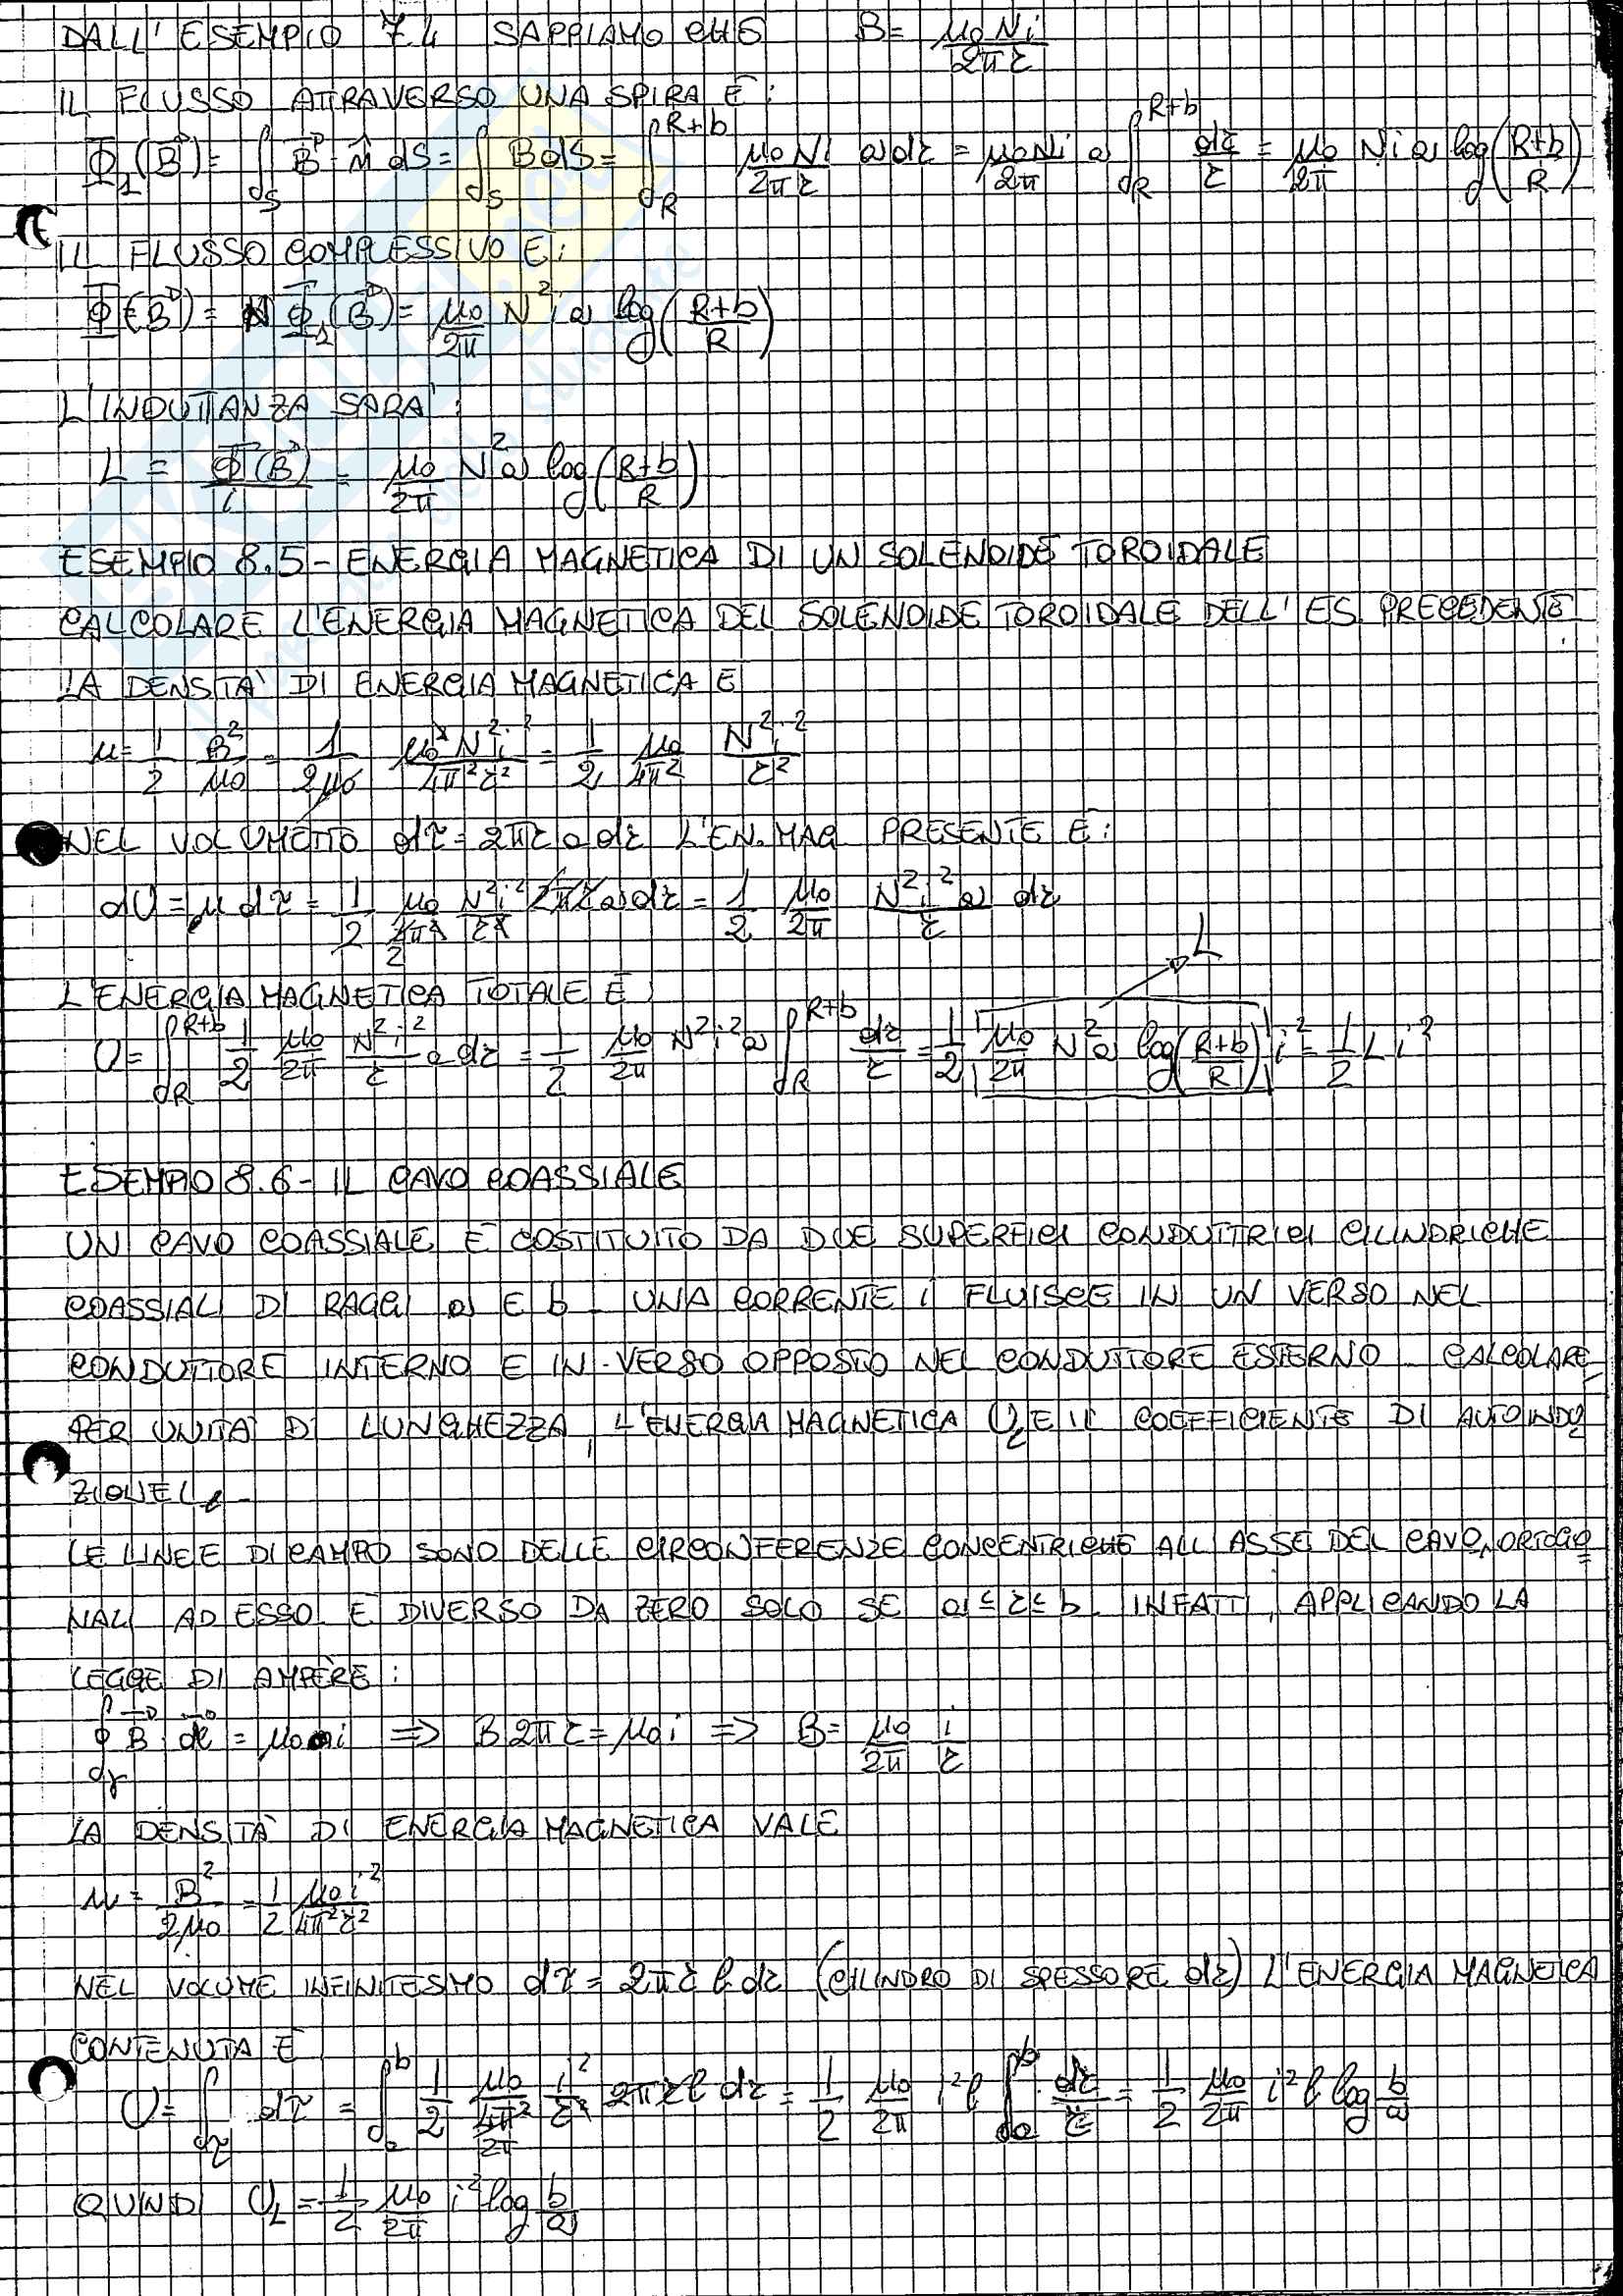 DALL' ESEMPIO 7.4 SAPPIAMO CHE B = μ₀Ni/2πr
IL FLUSSO ATTRAVERSO UNA SPIRA È:
Φ₁(B⃗) = ∫_S B⃗·n̂ dS = ∫_S B dS = ∫_R^{R+b} μ₀Ni/2πr a dr = μ₀Ni/2π a ∫_R^{R+b} dr/r = μ₀/2π N i a log((R+b)/R)
IL FLUSSO COMPLESSIVO È:
Φ(B⃗) = NΦ₁(B⃗) = μ₀/2π N² i a log((R+b)/R)
L'INDUTTANZA SARA':
L = Φ(B⃗)/i = μ₀/2π N² a log((R+b)/R)
ESEMPIO 8.5 - ENERGIA MAGNETICA DI UN SOLENOIDE TOROIDALE
CALCOLARE L'ENERGIA MAGNETICA DEL SOLENOIDE TOROIDALE DELL'ES. PRECEDENTE
LA DENSITA' DI ENERGIA MAGNETICA È
u = 1/2 B²/μ₀ = 1/2μ₀ μ₀²N²i²/4π²r² = 1/2 μ₀/4π² N²i²/r²
NEL VOLUMETTO dτ = 2πr a dr L'EN. MAG PRESENTE È:
dU = u dτ = 1/2 μ₀/4π² N²i²/r² 2πr a dr = 1/2 μ₀/2π N²i²a/r dr
L
L'ENERGIA MAGNETICA TOTALE È
U = ∫_R^{R+b} 1/2 μ₀/2π N²i²/r a dr = 1/2 μ₀/2π N²i²a ∫_R^{R+b} dr/r = 1/2 μ₀/2π N²a log((R+b)/R) i² = 1/2 L i²
ESEMPIO 8.6 - IL CAVO COASSIALE
UN CAVO COASSIALE È COSTITUITO DA DUE SUPERFICI CONDUTTRICI CILINDRICHE
COASSIALI DI RAGGI a E b. UNA CORRENTE i FLUISCE IN UN VERSO NEL
CONDUTTORE INTERNO E IN VERSO OPPOSTO NEL CONDUTTORE ESTERNO. CALCOLARE,
PER UNITA' DI LUNGHEZZA, L'ENERGIA MAGNETICA U_L E IL COEFFICIENTE DI AUTOINDU
ZIONE L_l.
LE LINEE DI CAMPO SONO DELLE CIRCONFERENZE CONCENTRICHE ALL'ASSE DEL CAVO, ORTOGO=
NALI AD ESSO. È DIVERSO DA ZERO SOLO SE a ≤ r ≤ b. INFATTI, APPLICANDO LA
LEGGE DI AMPÈRE:
∮_γ B⃗·dl⃗ = μ₀ i ⇒ B 2πr = μ₀i ⇒ B = μ₀/2π i/r
LA DENSITA' DI ENERGIA MAGNETICA VALE
u = B²/2μ₀ = 1/2 μ₀i²/4π²r²
NEL VOLUME INFINITESIMO dτ = 2πr l dr (CILINDRO DI SPESSORE dr) L'ENERGIA MAGNETICA
CONTENUTA È
U = ∫_τ dτ = ∫_a^b 1/2 μ₀/4π² i²/r² 2πr l dr = 1/2 μ₀/2π i² l ∫_a^b dr/r = 1/2 μ₀/2π i² l log b/a
QUINDI U_L = 1/2 μ₀/2π i² log b/a